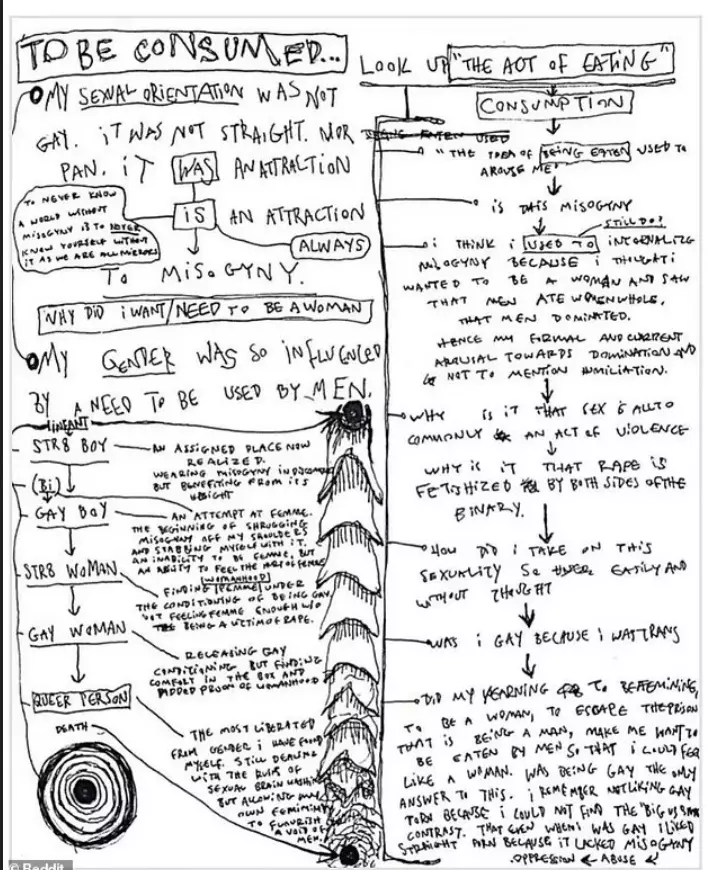 TO BE CONSUMED...
MY SEXUAL ORIENTATION WAS NOT
GAY. iT WAS NOT STRAIGHT. NOR
PAN. iT WAS AN ATTRACTION
iS AN ATTRACTION
ALWAYS
TO MiSOGYNY.
TO NEVER KNOW
A WORLD WITHOUT
MISOGYNY IS TO NEVER
KNOW YOURSELF WITHOUT
IT AS WE ARE ALL MIRRORS
WHY DID i WANT/NEED TO BE A WOMAN
MY GENDER WAS SO INFLUENCED
BY A NEED TO BE USED BY MEN.
INFANT
STR8 BOY
AN ASSIGNED PLACE NOW
REALIZED.
WEARING MISOGYNY IN
BUT BENEFITING FROM ITS
WEIGHT
(Bi)
GAY BOY
AN ATTEMPT AT FEMME.
THE BEGINNING OF SHRUGGING
MISOGYNY OFF MY SHOULDERS
AND STABBING MYSELF WITH IT.
AN INABILITY TO BE FEMME, BUT
AN ABILITY TO FEEL THE HURT OF FEMME
STR8 WOMAN
WOMANHOOD
FINDING FEMME UNDER
THE CONDITIONING OF BEING GAY
NOT FEELING FEMME ENOUGH W/O
BEING A VICTIM OF RAPE.
GAY WOMAN
RELEASING GAY
CONDITIONING BUT FINDING
COMFORT IN THE BOX AND
ADDED PROOF OF WOMANHOOD
QUEER PERSON
THE MOST LIBERATED
FROM GENDER i HAVE FOUND
MYSELF. STILL DEALING
WITH THE RUINS OF
SEXUAL BRAIN WASHING
BUT ALLOWING MY
OWN FEMININITY
TO FLOURISH
A VOID OF
MEN.
DEATH
LOOK UP "THE ACT OF EATING"
CONSUMPTION
BEING EATEN USED
"THE IDEA OF BEING EATEN USED TO
AROUSE ME"
iS THIS MISOGYNY
STILL DO?
i THINK i USED TO INTERNALIZE
MISOGYNY BECAUSE i THOUGHT i
WANTED TO BE A WOMAN AND SAW
THAT MEN ATE WOMEN WHOLE,
THAT MEN DOMINATED.
HENCE MY FORMAL AND CURRENT
AROUSAL TOWARDS DOMINATION AND
NOT TO MENTION HUMILIATION.
WHY IS IT THAT SEX IS ALL TO
COMMONLY AN ACT OF VIOLENCE
WHY IS IT THAT RAPE IS
FETISHIZED BY BOTH SIDES OF THE
BINARY.
HOW DID i TAKE ON THIS
SEXUALITY SO EASILY AND
WITHOUT THOUGHT
WAS i GAY BECAUSE i WAS TRANS
DID MY YEARNING TO BE FEMININE,
TO BE A WOMAN, TO ESCAPE THE PRISON
THAT IS BEING A MAN, MAKE ME WANT TO
BE EATEN BY MEN SO THAT i COULD FEEL
LIKE A WOMAN. WAS BEING GAY THE ONLY
ANSWER TO THIS. i REMEMBER NOT LIKING GAY
PORN BECAUSE i COULD NOT FIND THE "BIG VS
CONTRAST. THAT EVEN WHEN i WAS GAY i LIKED
STRAIGHT PORN BECAUSE IT LACKED MISOGYNY
OPPRESSION ABUSE
© Reddit